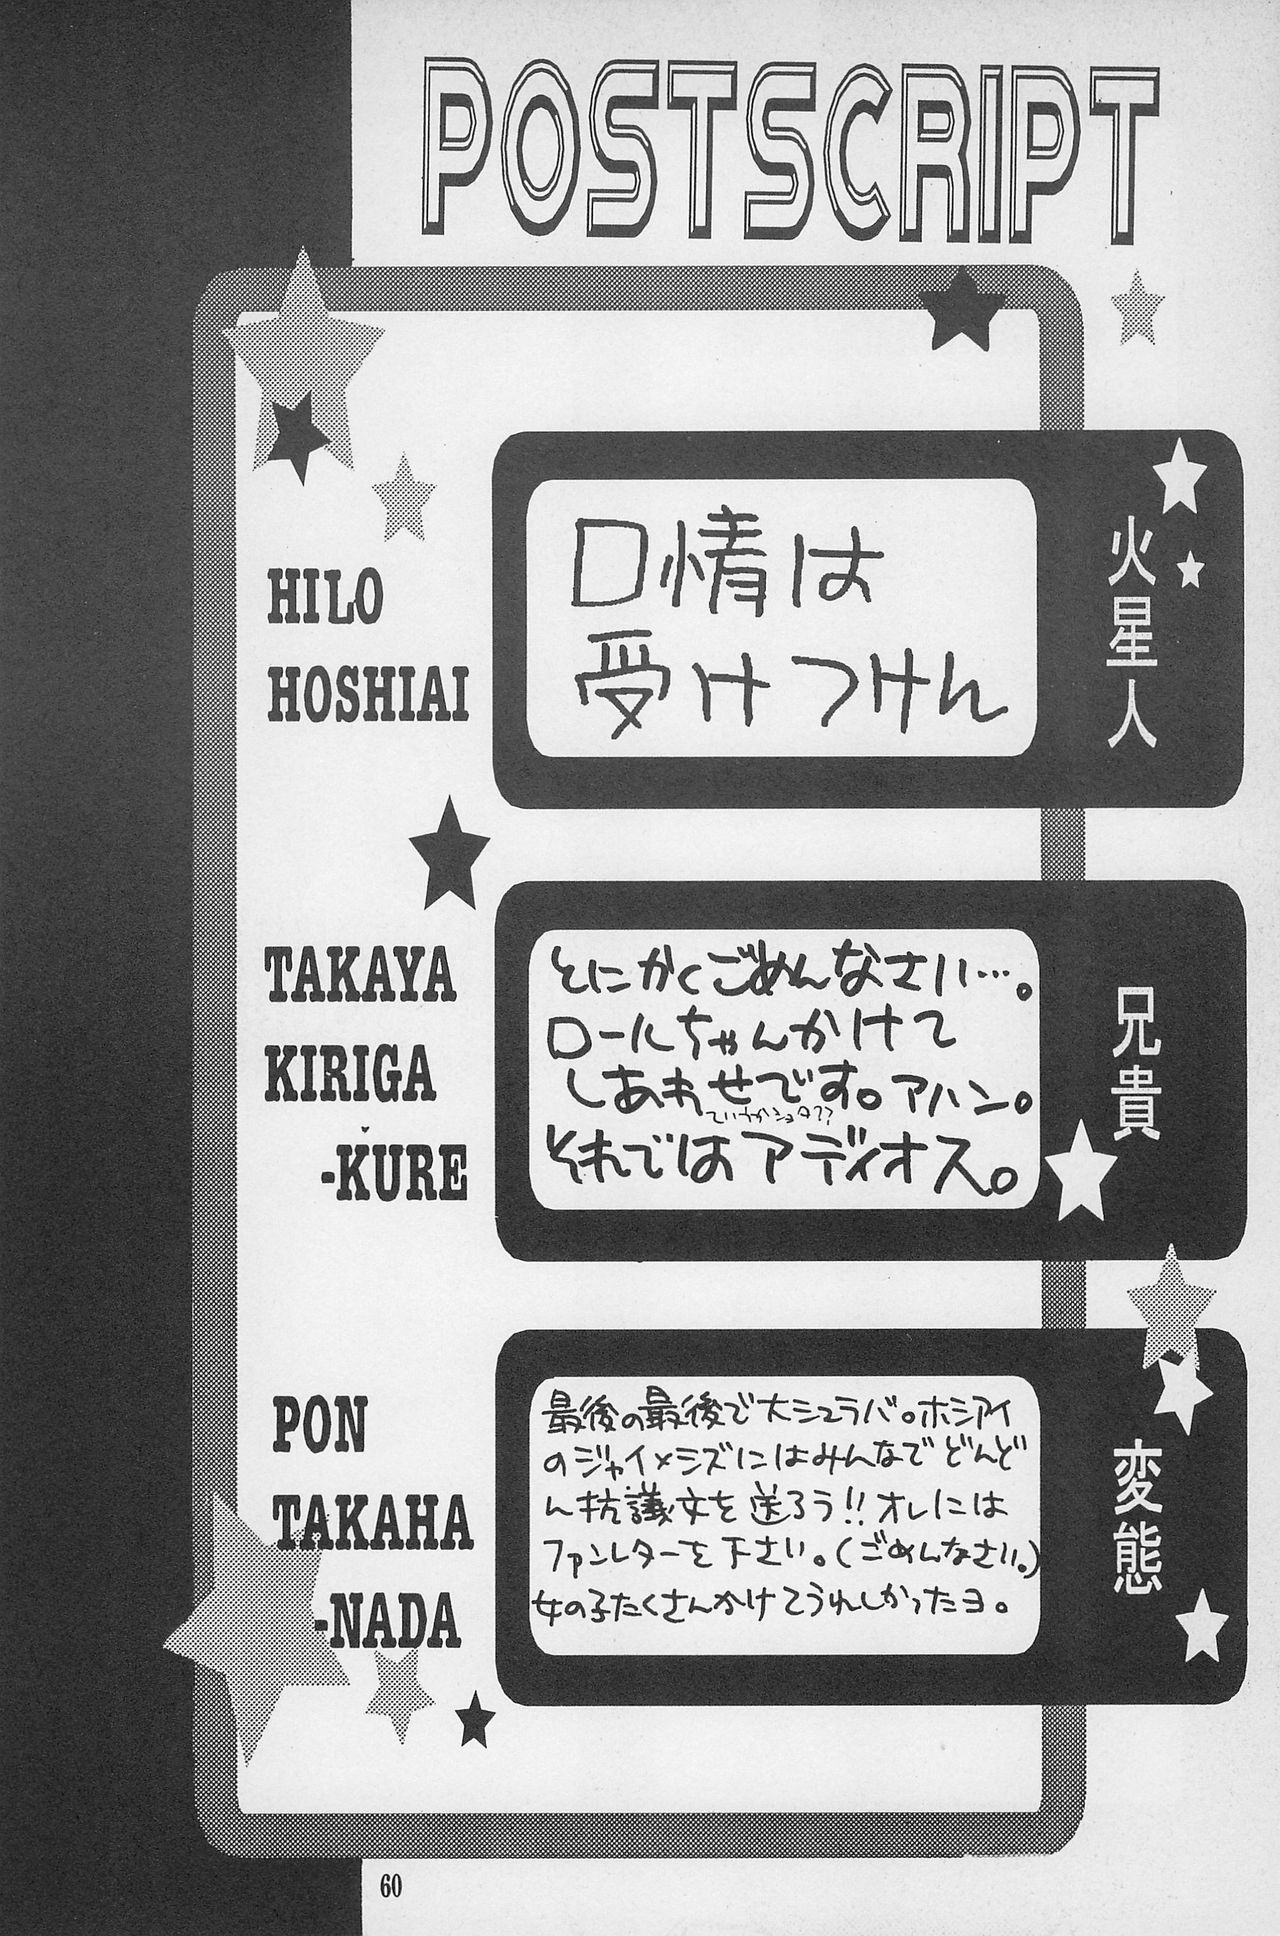 POSTSCRIPT
HILO
HOSHIAI
火星人
口情は
受けつけん
TAKAYA
KIRIGA
-KURE
兄貴
とにかくごめんなさい…。
ロールちゃんかけて
しあわせです。アハン。
ていうかショタ??
それではアディオス。
PON
TAKAHA
-NADA
変態
最後の最後で大シュラバ。ホシアイ
のジャイ×シズにはみんなでどんど
ん抗議文を送ろう!!オレには
ファンレターを下さい。(ごめんなさい。)
女の子たくさんかけてうれしかったヨ。
60